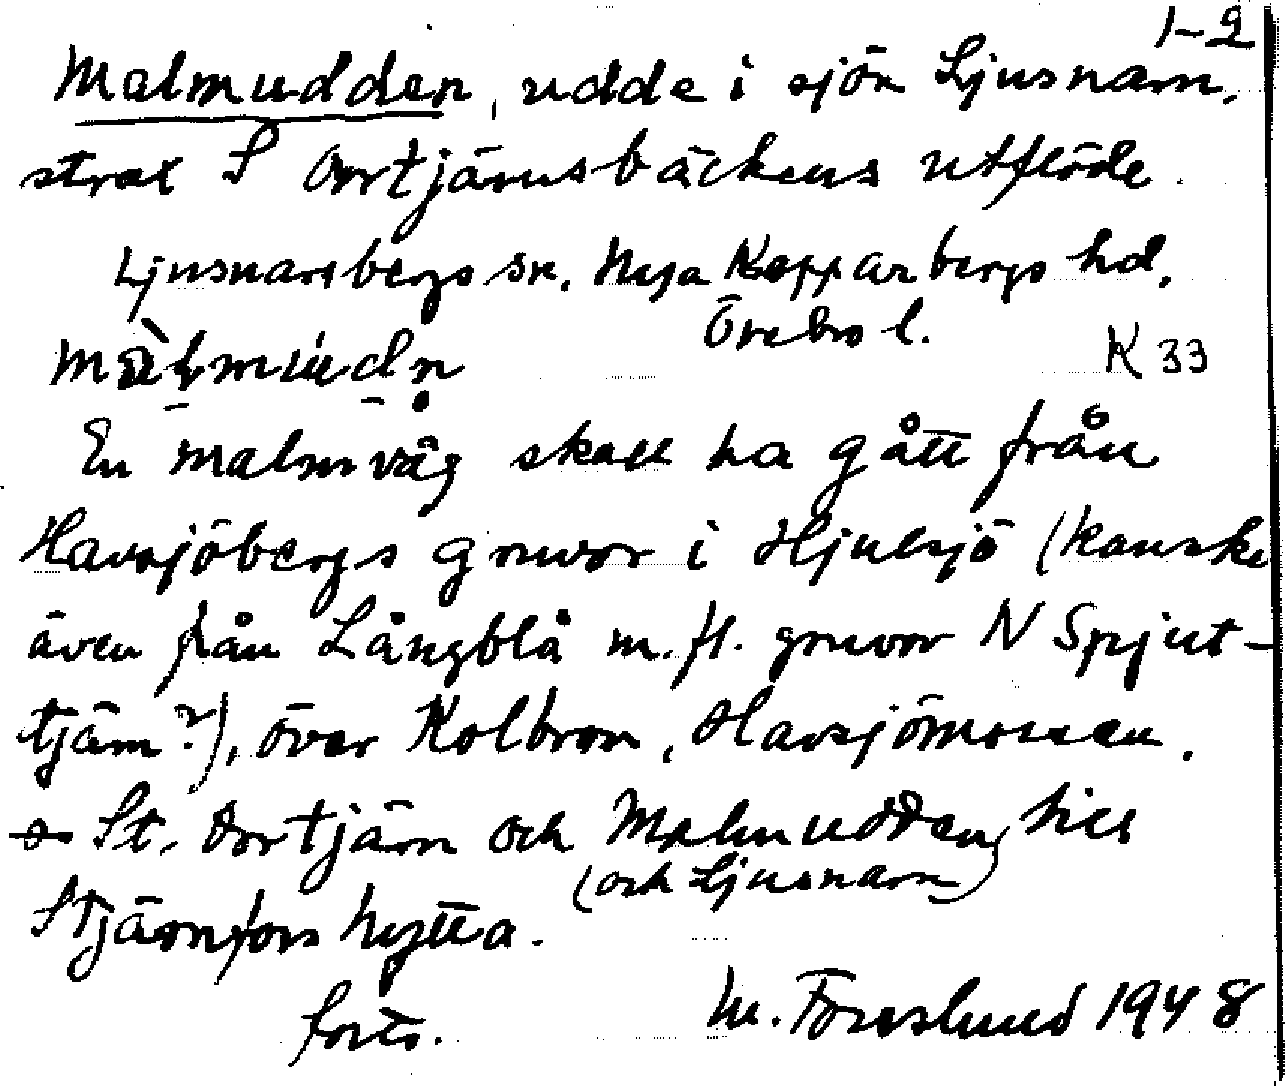 1-2
Malmudden, udde i sjön Ljusnarn,
strax S Orrtjärnsbäckens utflöde.
Ljusnarsbergs sn. Nya Kopparbergs hd,
Örebro l.
K 33
En malmväg skall ha gått från
Havsjöbergs gruvor i Hjulsjö (kanske
även från Långblå m.fl. gruvor N Spjut-
tjärn?), över Kolbron, Havsjömossen.
St. Orrtjärn och Malmudden till
(och Ljusnarn)
Stjärnfors hytta.
forts.
M. Foreslund 1948